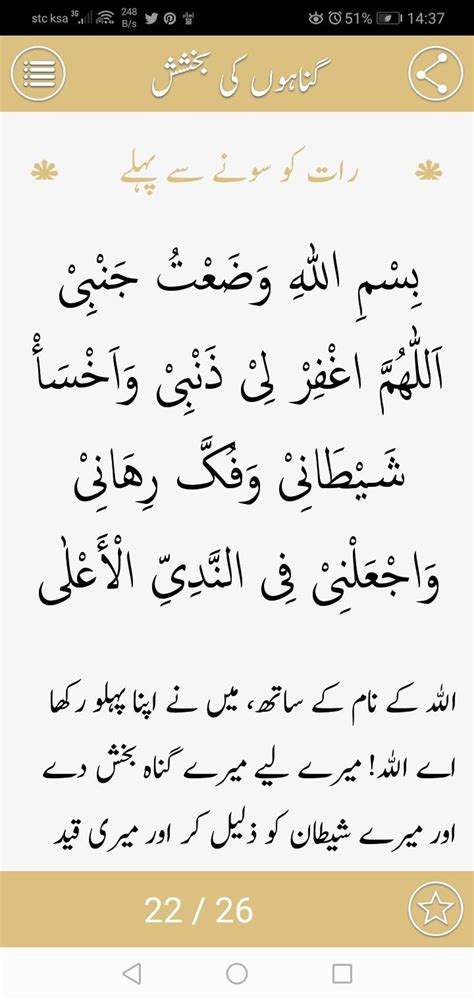 stc ksa 3G 248 B/s 51% 14:37
گناہوں کی بخشش
رات کو سونے سے پہلے
بِسْمِ اللّٰهِ وَضَعْتُ جَنْبِیْ
اَللّٰهُمَّ اغْفِرْ لِیْ ذَنْبِیْ وَاَخْسَأْ
شَیْطَانِیْ وَفُکَّ رِهَانِیْ
وَاجْعَلْنِیْ فِی النَّدِیِّ الْأَعْلٰی
اللہ کے نام کے ساتھ، میں نے اپنا پہلو رکھا
اے اللہ! میرے لیے میرے گناہ بخش دے
اور میرے شیطان کو ذلیل کر اور میری قید
22 / 26